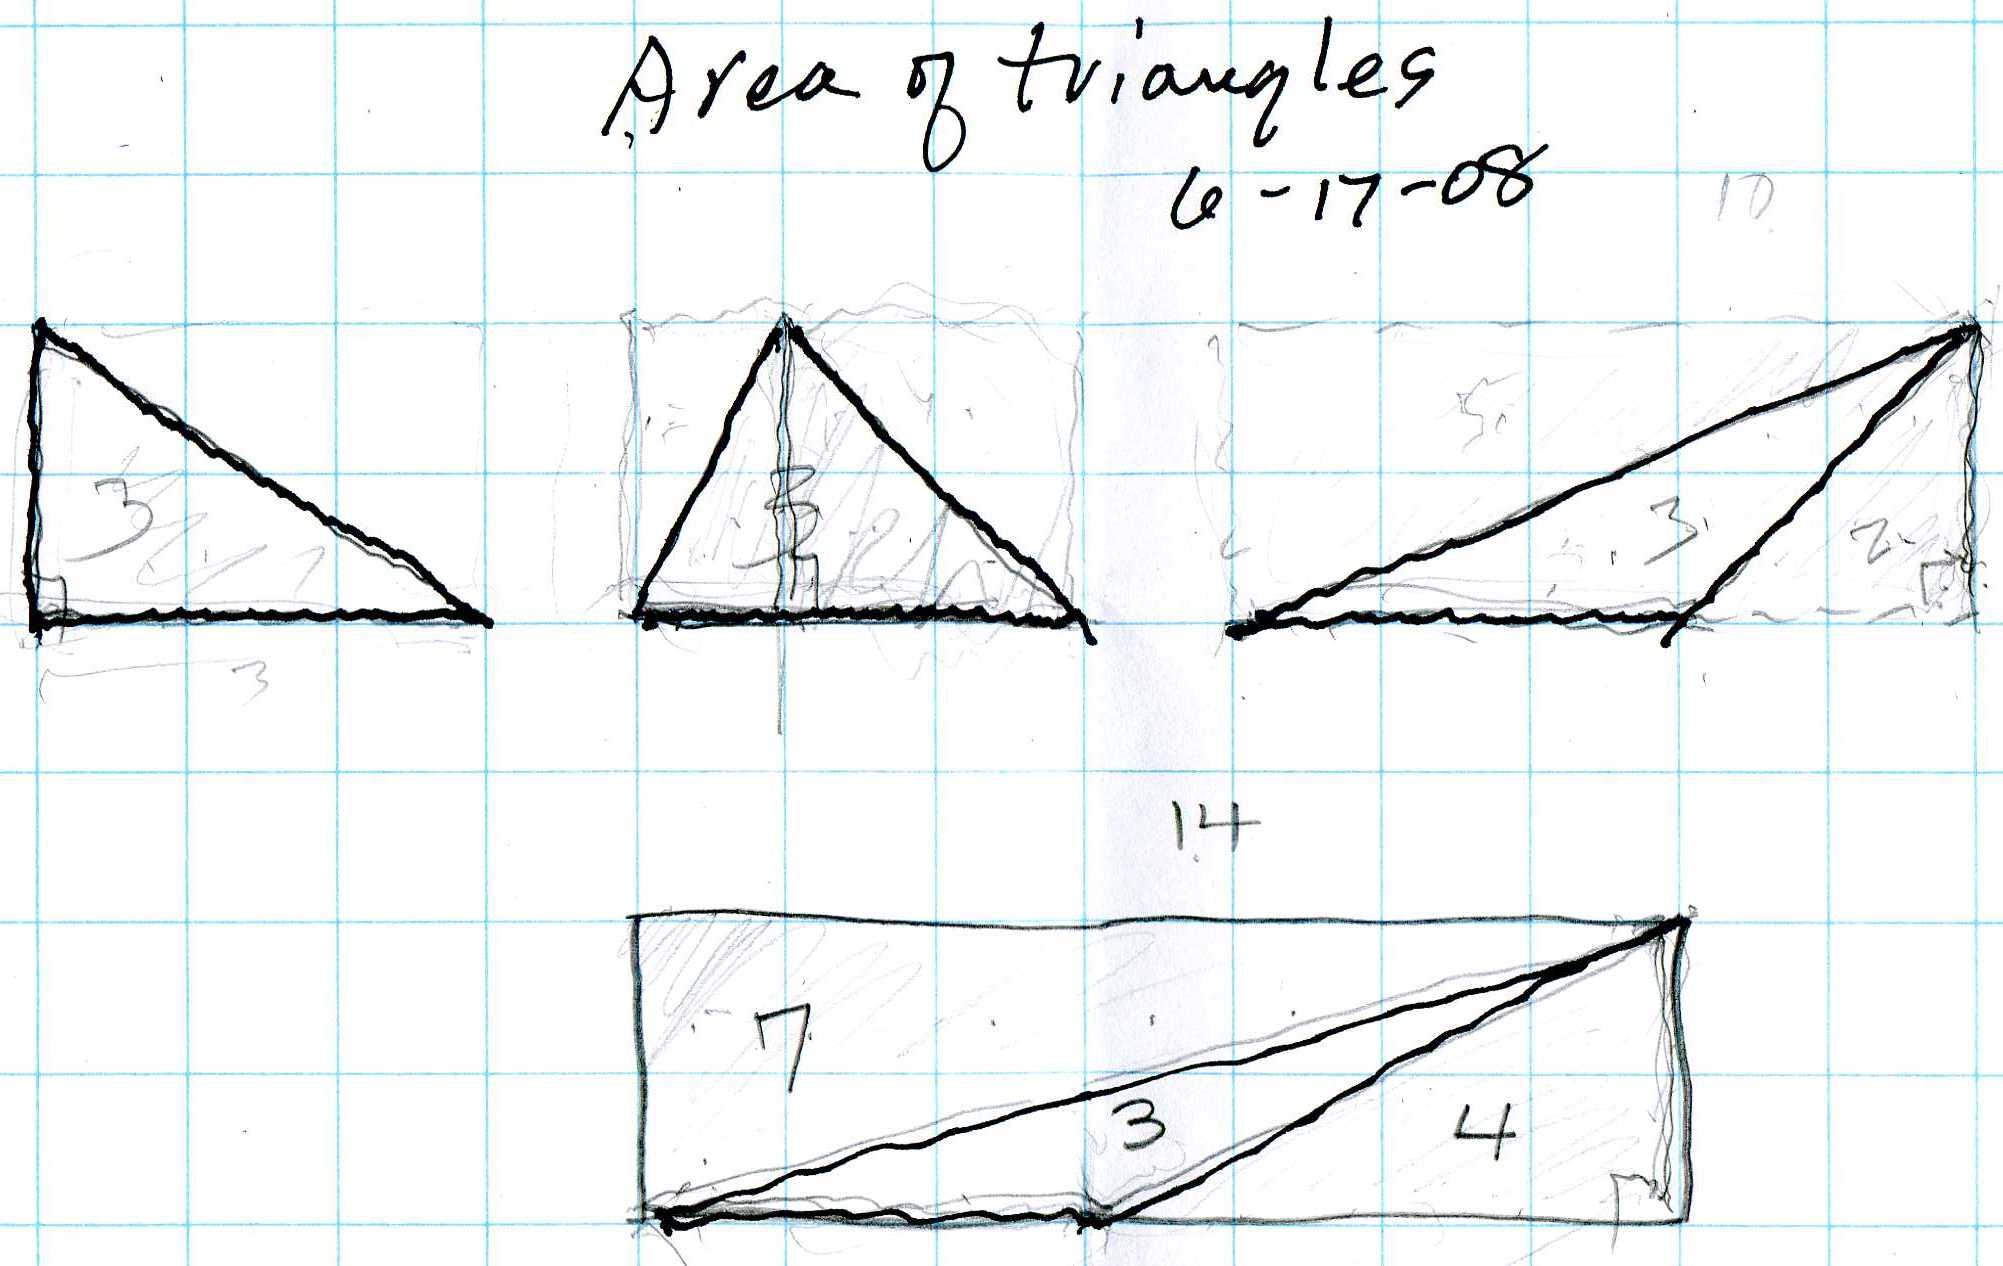 Area of triangles
6-17-08
10
5
3
3
2
3
14
7
3
4